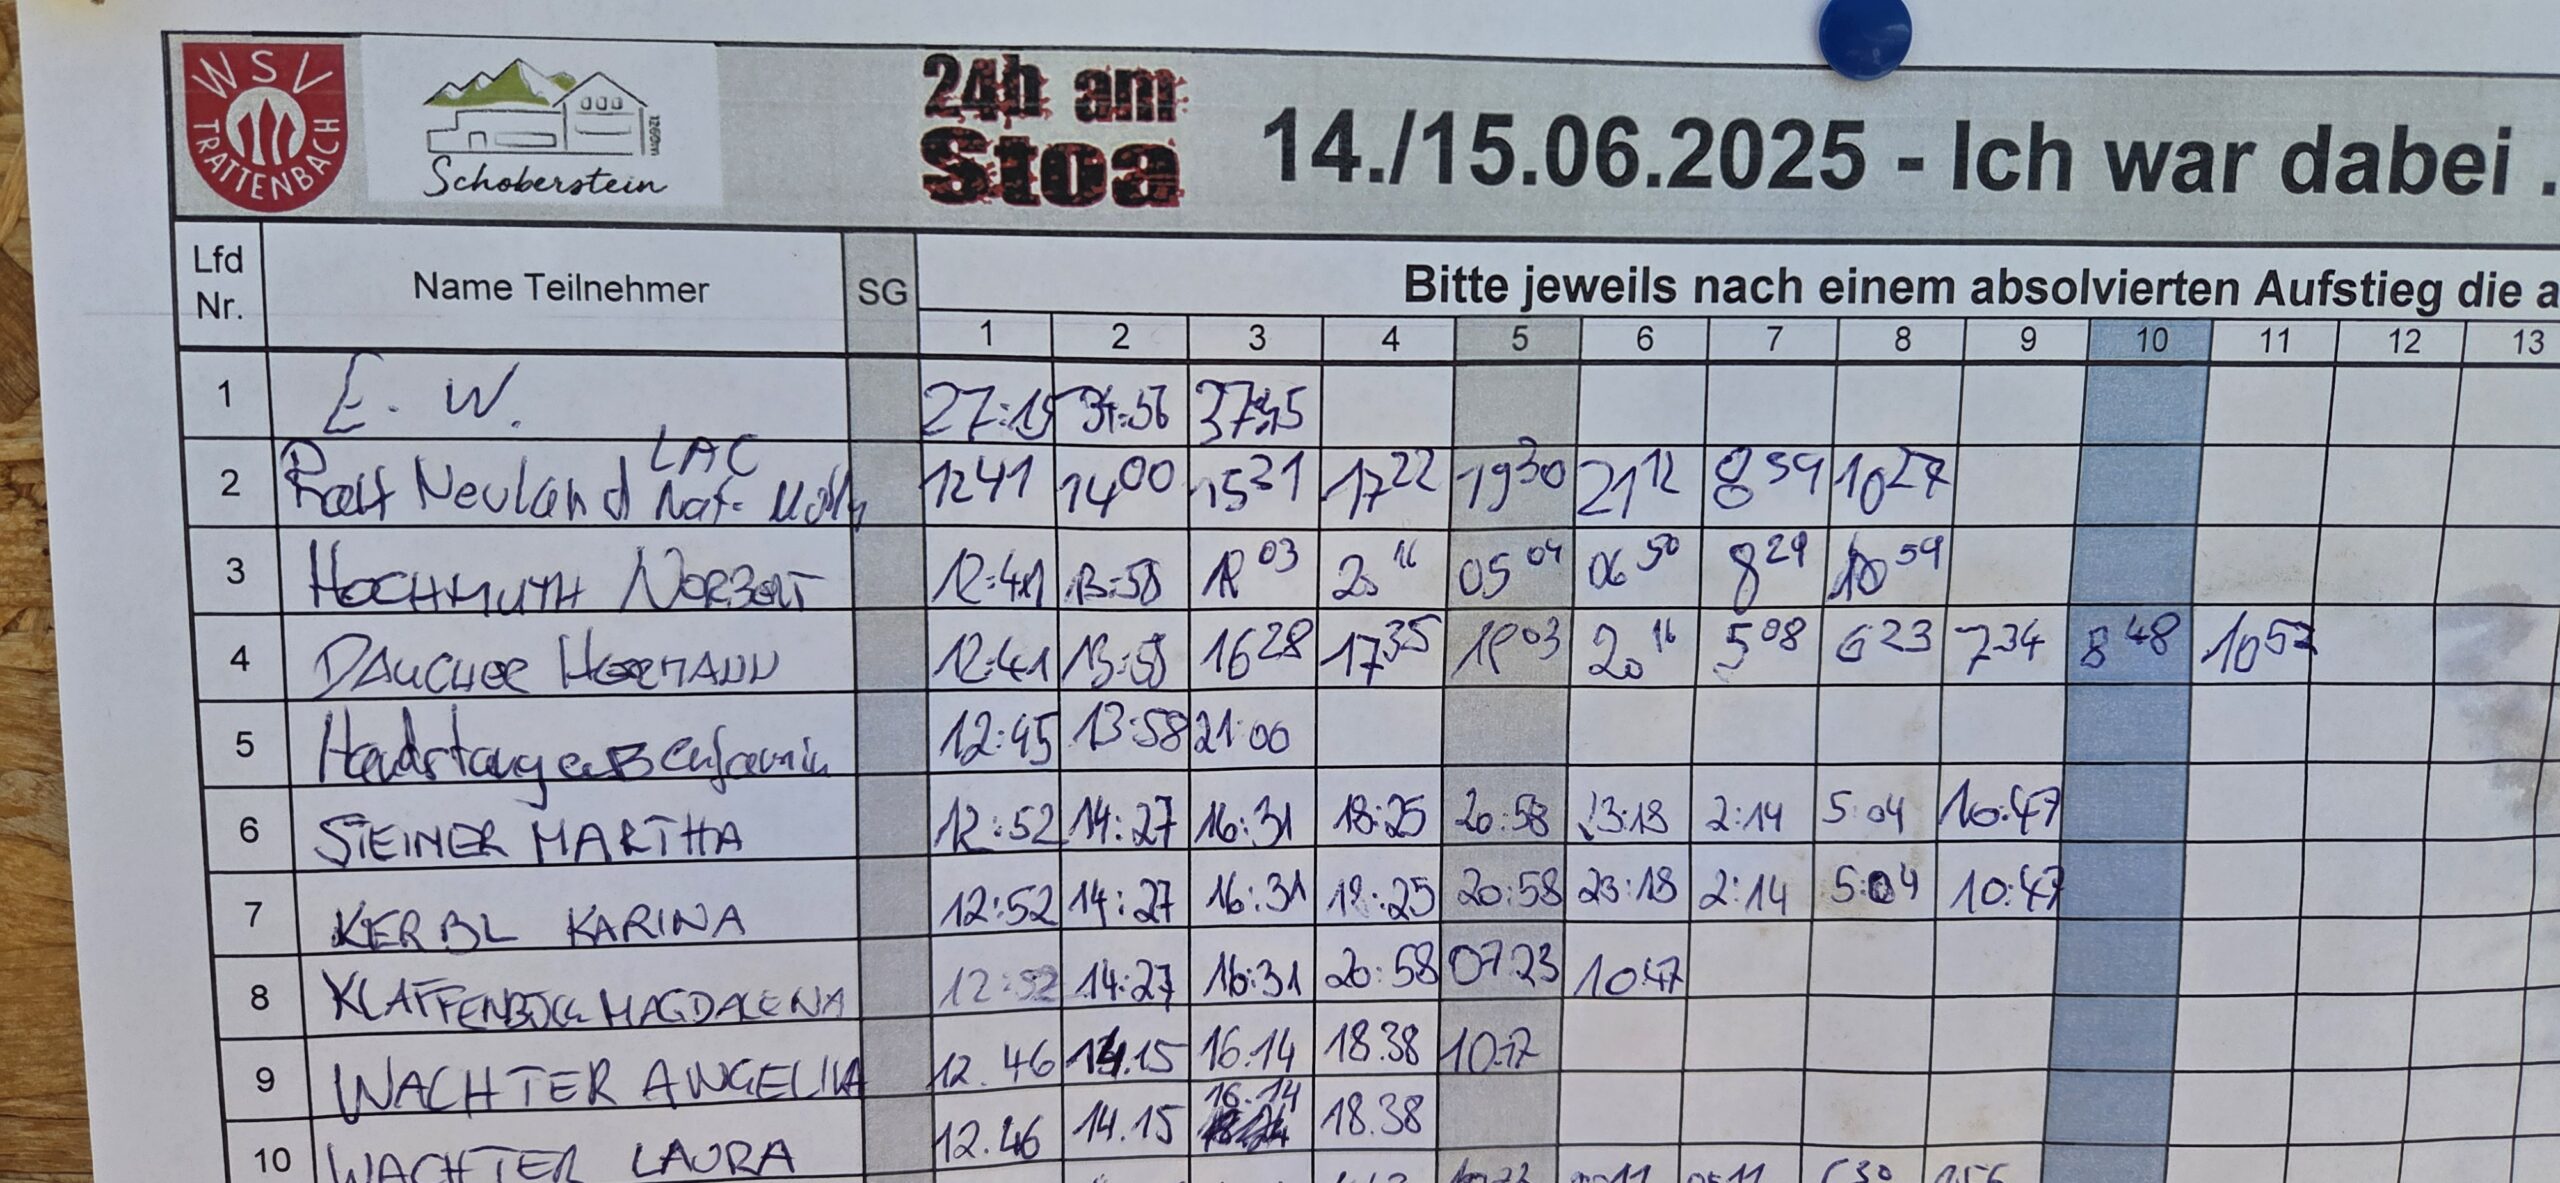 WSV
TRATTENBACH
1260m
Schoberstein
24h am
Stoa
14./15.06.2025 - Ich war dabei .
Lfd
Nr.
Name Teilnehmer
SG
Bitte jeweils nach einem absolvierten Aufstieg die a
1 2 3 4 5 6 7 8 9 10 11 12 13
1 E. W. 27:15 34:56
2 Ralf Neuland LAC Nat. 1241 1400 1531 1722 1930 2112 859 1027
3 HOCHMUTH NORBERT 12:41 13:58 2016 0504 0650 829 1059
4 HERMANN 12:41 13:58 1628 1735 2016 508 623 734 848 1052
5 Benjamin 12:45 13:58 21:00
6 STEINER MARTHA 12:52 14:27 16:31 18:25 20:58 23:18 2:14 5:04 10:47
7 KERBL KARINA 12:52 14:27 16:31 18:25 20:58 23:18 2:14 5:04 10:47
8 KLAFFENBÖCK MAGDALENA 12:52 14:27 16:31 20:58 07:23 10:47
9 WACHTER ANGELIKA 12.46 14.15 16.14 18.38 10:17
10 WACHTER LAURA 12.46 14.15 16.14 18.38